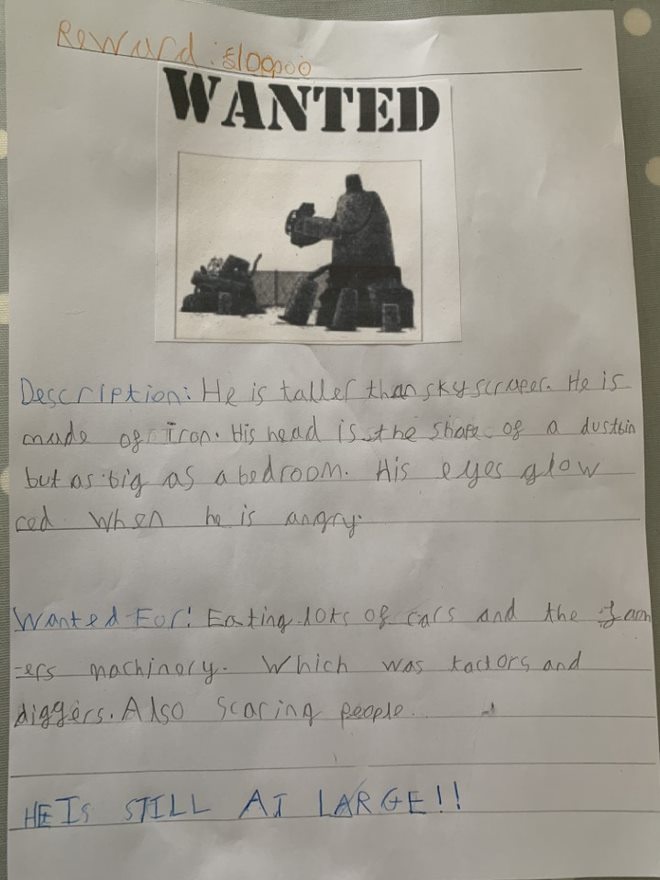 Reward: £100000
WANTED
Description: He is taller than skyscraper. He is
made of iron. His head is the shape of a dustbin
but as big as a bedroom. His eyes glow
red when he is angry.
Wanted For: Eating lots of cars and the farm
-ers machinery. Which was tactors and
diggers. Also scaring people.
HE IS STILL AT LARGE!!